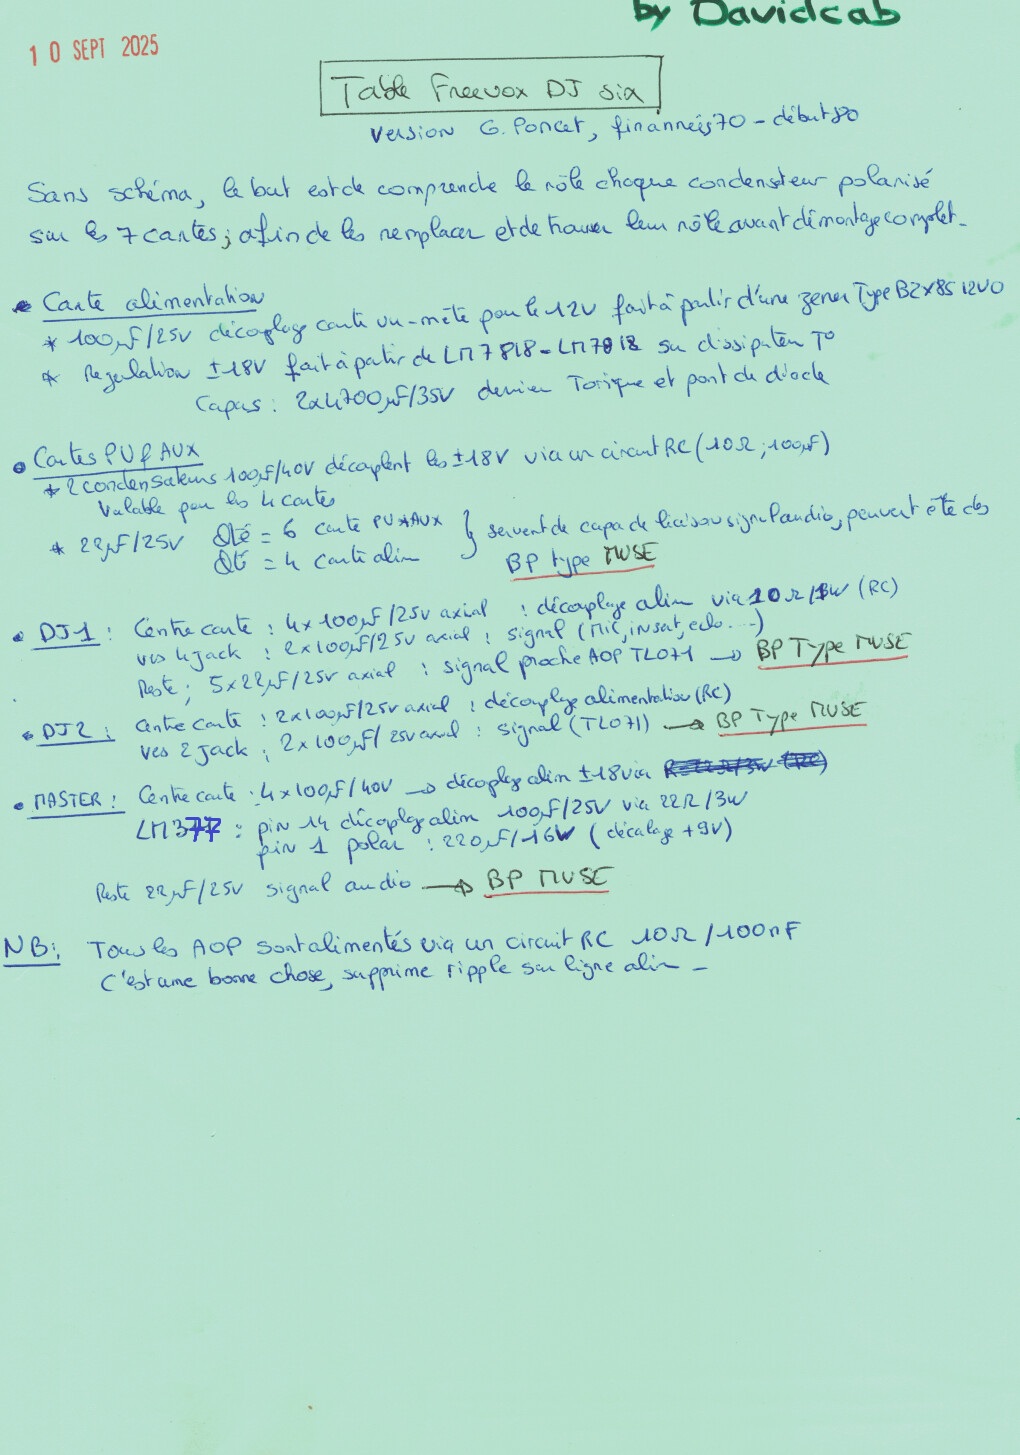 by Davidcab
10 SEPT 2025
Table Freevox DJ six
version G. Poncet, fin années 70 - début 80
Sans schéma, le but est de comprendre le rôle chaque condensateur polarisé
sur les 7 cartes ; afin de les remplacer et de trouver leur rôle avant démontage complet.
• Carte alimentation
* 100µF/25V découplage carte vu-mètre pour le 12V fait à partir d'une zener Type BZX85 12V0
* Régulation ±18V fait à partir de LM7818 - LM7918 sur dissipateur T°
Capas : 2x4700µF/35V derrier Torique et pont de diode
• Cartes PU & AUX
* 2 condensateurs 100µF/40V découplent les ±18V via un circuit RC (10Ω ; 100µF)
Valable pour les 4 cartes
* 22µF/25V Qté = 6 carte PU * AUX
Qté = 4 carte alim
} servent de capa de liaison signal audio, peuvent être des
BP type MUSE
• DJ1 : Centre carte : 4x100µF/25V axial : découplage alim via 10Ω/3W (RC)
vers 4 jack : 2x100µF/25V axial : signal (Mic, insat, echo ....)
Reste ; 5x22µF/25V axial : signal proche AOP TL071 → BP Type MUSE
• DJ2 : Centre carte : 2x100µF/25V axial : découplage alimentation (RC)
vers 2 Jack ; 2x100µF/25V axial : signal (TL071) → BP Type MUSE
• MASTER : Centre carte : 4x100µF/40V → découplage alim ±18 via
LM377 : pin 14 découplage alim 100µF/25V via 22Ω/3W
pin 1 polar : 220µF/16V (décalage +9V)
Reste 22µF/25V signal audio → BP MUSE
NB : Tous les AOP sont alimentés via un circuit RC 10Ω/100nF
C'est une bonne chose, supprime ripple sur ligne alim -